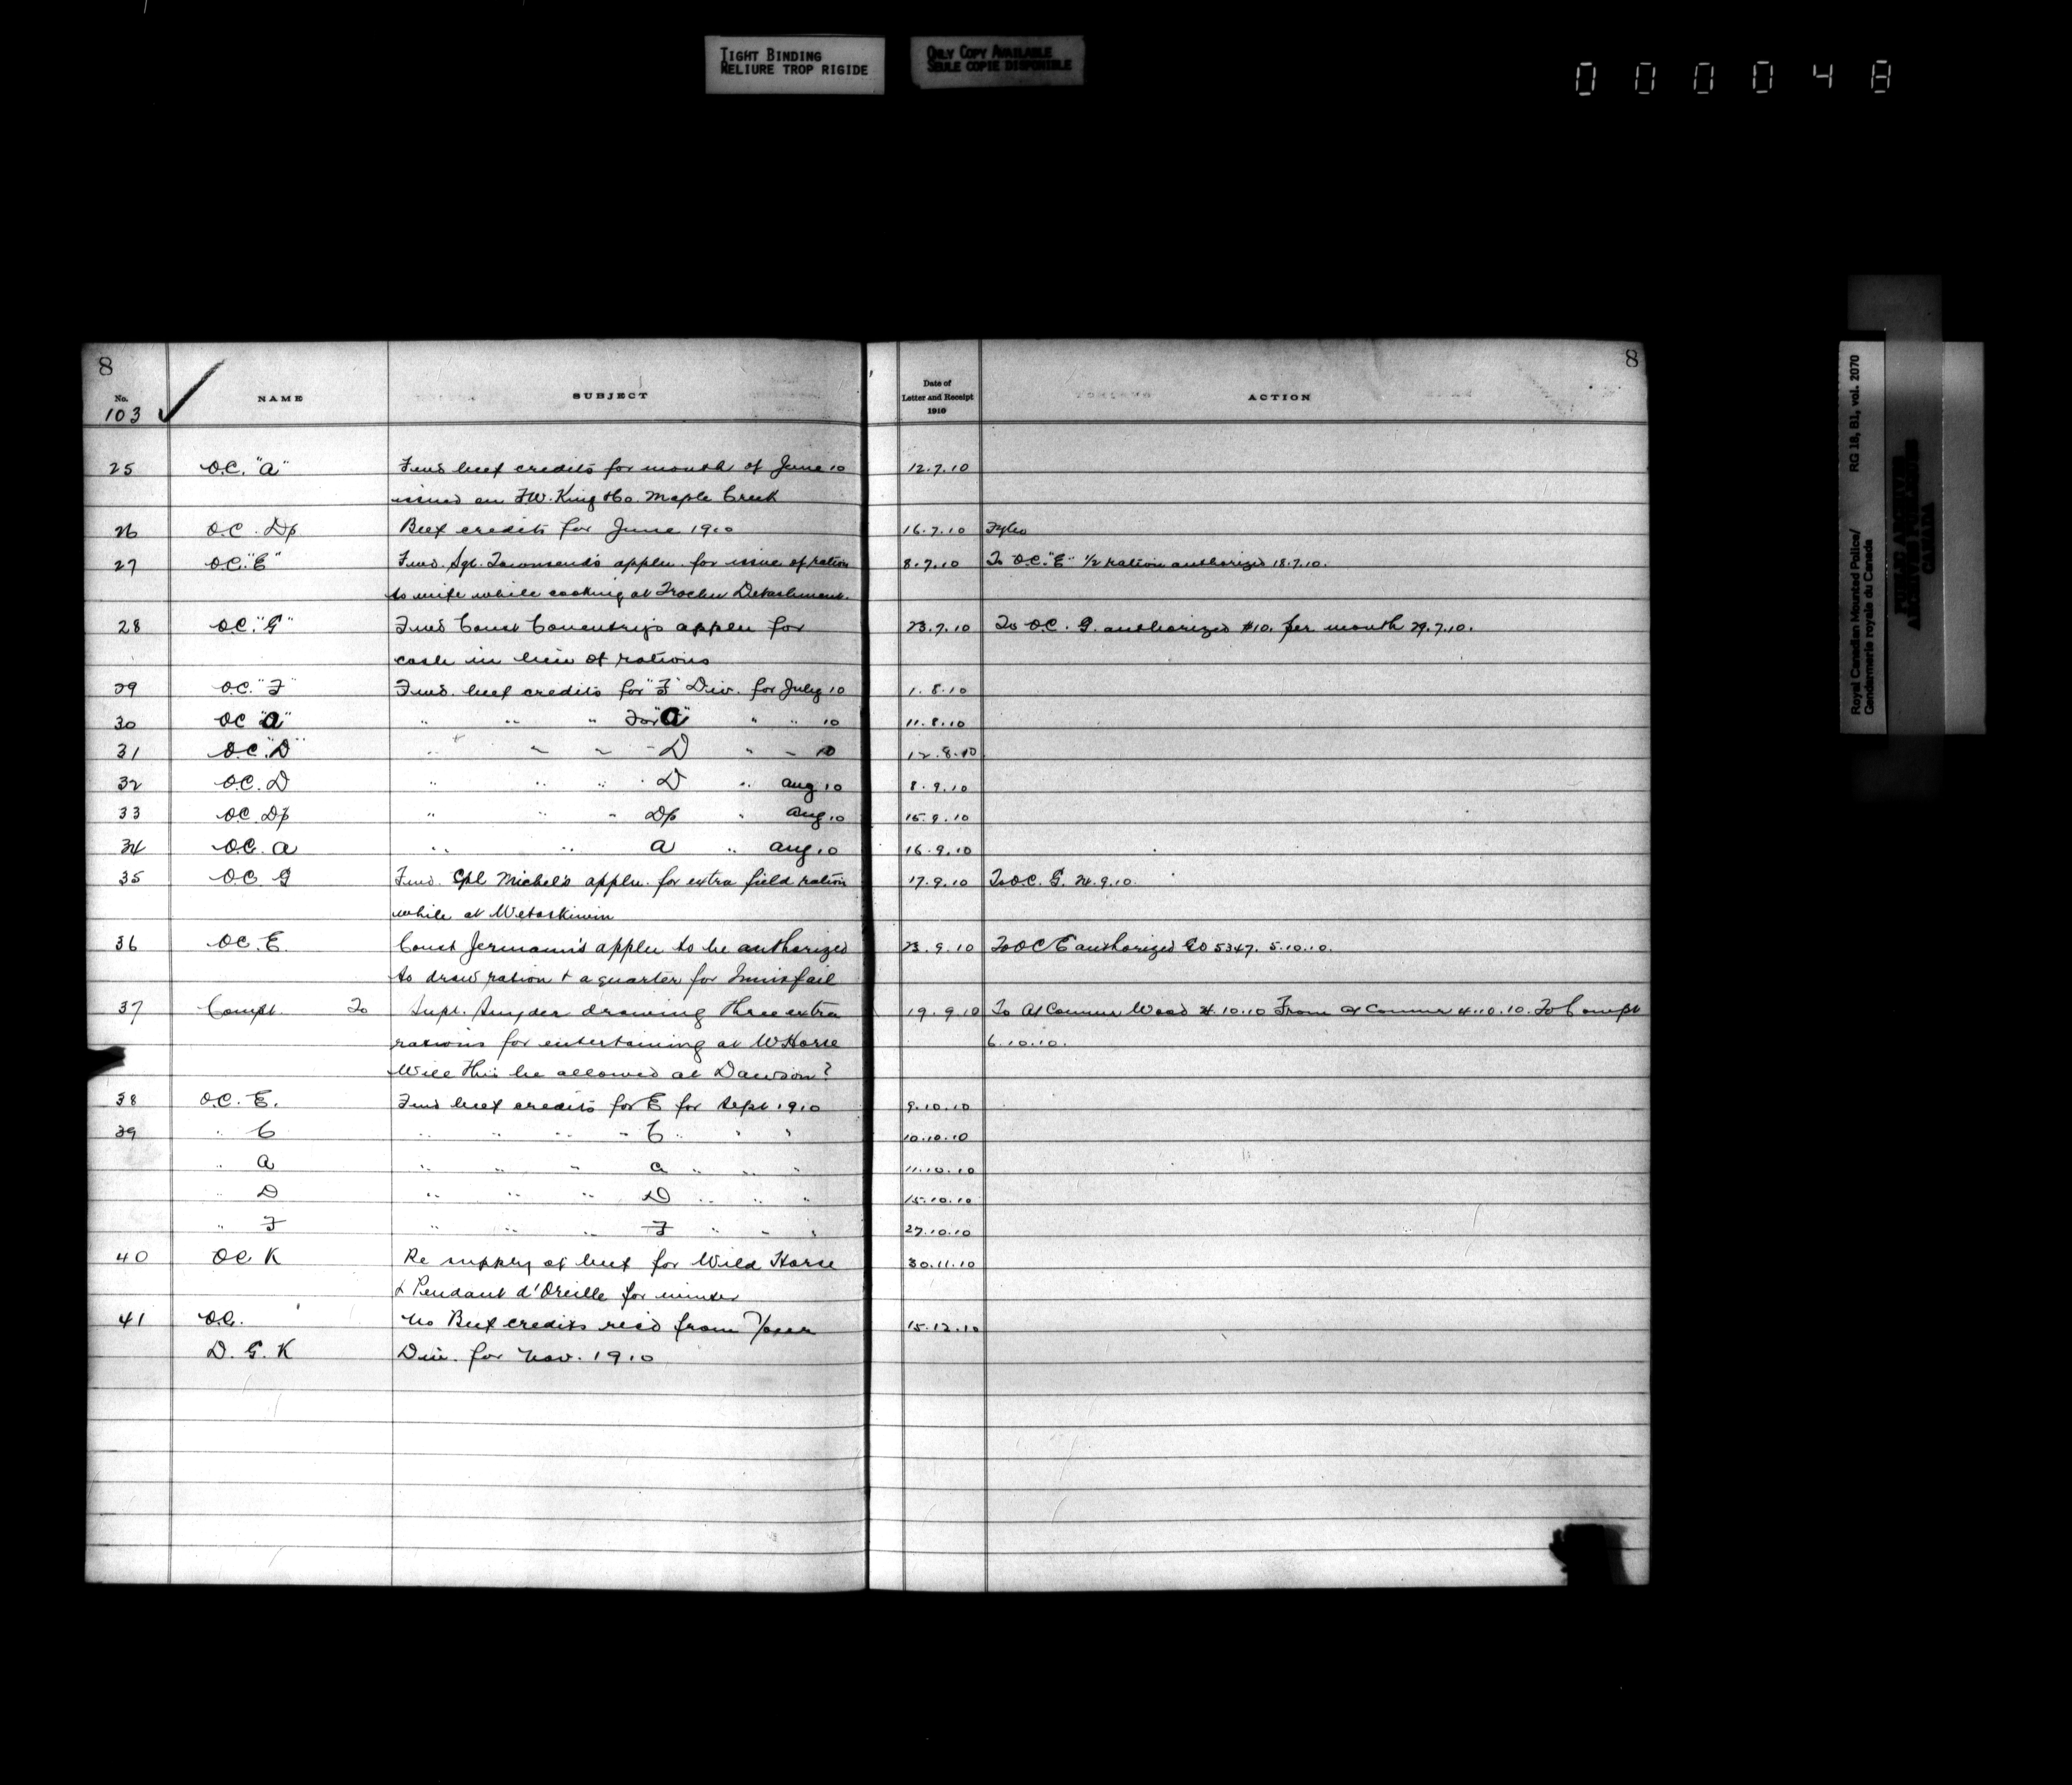 TIGHT BINDING
RELIURE TROP RIGIDE
ONLY COPY AVAILABLE
SEULE COPIE DISPONIBLE
000048
8
No. NAME SUBJECT
103
Date of
Letter and Receipt
1910
ACTION
8
25 O.C. "A" Fwd beef credits for month of June 10 12.7.10
issued on F.W. King Ho. Maple Creek
26 O.C. Dp Beef credits for June 1910 16.7.10
27 O.C. "E" Fwd. Sgt. Townsend's appln. for issue of ration 8.7.10 To O.C. "E" 1/2 ration authorized 18.7.10.
to wife while cooking at Trochu Detachment.
28 O.C. "G" Fwd Const Coventry's appln for 23.7.10 To O.C. G. authorized $10. per month 29.7.10.
cash in lieu of rations
29 O.C. "F" Fwd. beef credits for "F" Div. for July 10 1.8.10
30 OC "A" " " " For "A" " " 10 11.8.10
31 O.C. "D" " " " " D " " 10 12.8.10
32 O.C. D " " " " D " Aug 10 8.9.10
33 O.C. Dp " " " Dp " Aug 10 15.9.10
34 O.C. A " " A " Aug 10 16.9.10
35 O.C. G Fwd. Cpl Michel's appln. for extra field ration 17.9.10 To O.C. G. 24.9.10.
while at Wetaskiwin
36 O.C. E. Const Jermann's appln to be authorized 23.9.10 To OC E authorized GO 5347. 5.10.10.
to draw ration & a quarter for Innisfail
37 Compt. To Supt. Snyder drawing three extra 19.9.10 To A/Commr Wood 4.10.10 From A/Commr 4.10.10. To Compt
rations for entertaining at W Horse 6.10.10.
Will this be allowed at Dawson?
38 O.C. E. Fwd beef credits for E for Sept 1910 9.10.10
39 " C " " " " C " " " 10.10.10
" A " " " A " " " 11.10.10
" D " " " D " " " 15.10.10
" F " " " F " " " 27.10.10
40 OC K Re supply of beef for Wild Horse 30.11.10
& Pendant d'Oreille for winter
41 O.C. No Beef credits rec'd from your 15.12.10
D. G. K Div. for Nov. 1910
Royal Canadian Mounted Police/ RG 18, B1, vol. 2070
Gendarmerie royale du Canada
PUBLIC ARCHIVES
ARCHIVES PUBLIQUES
CANADA